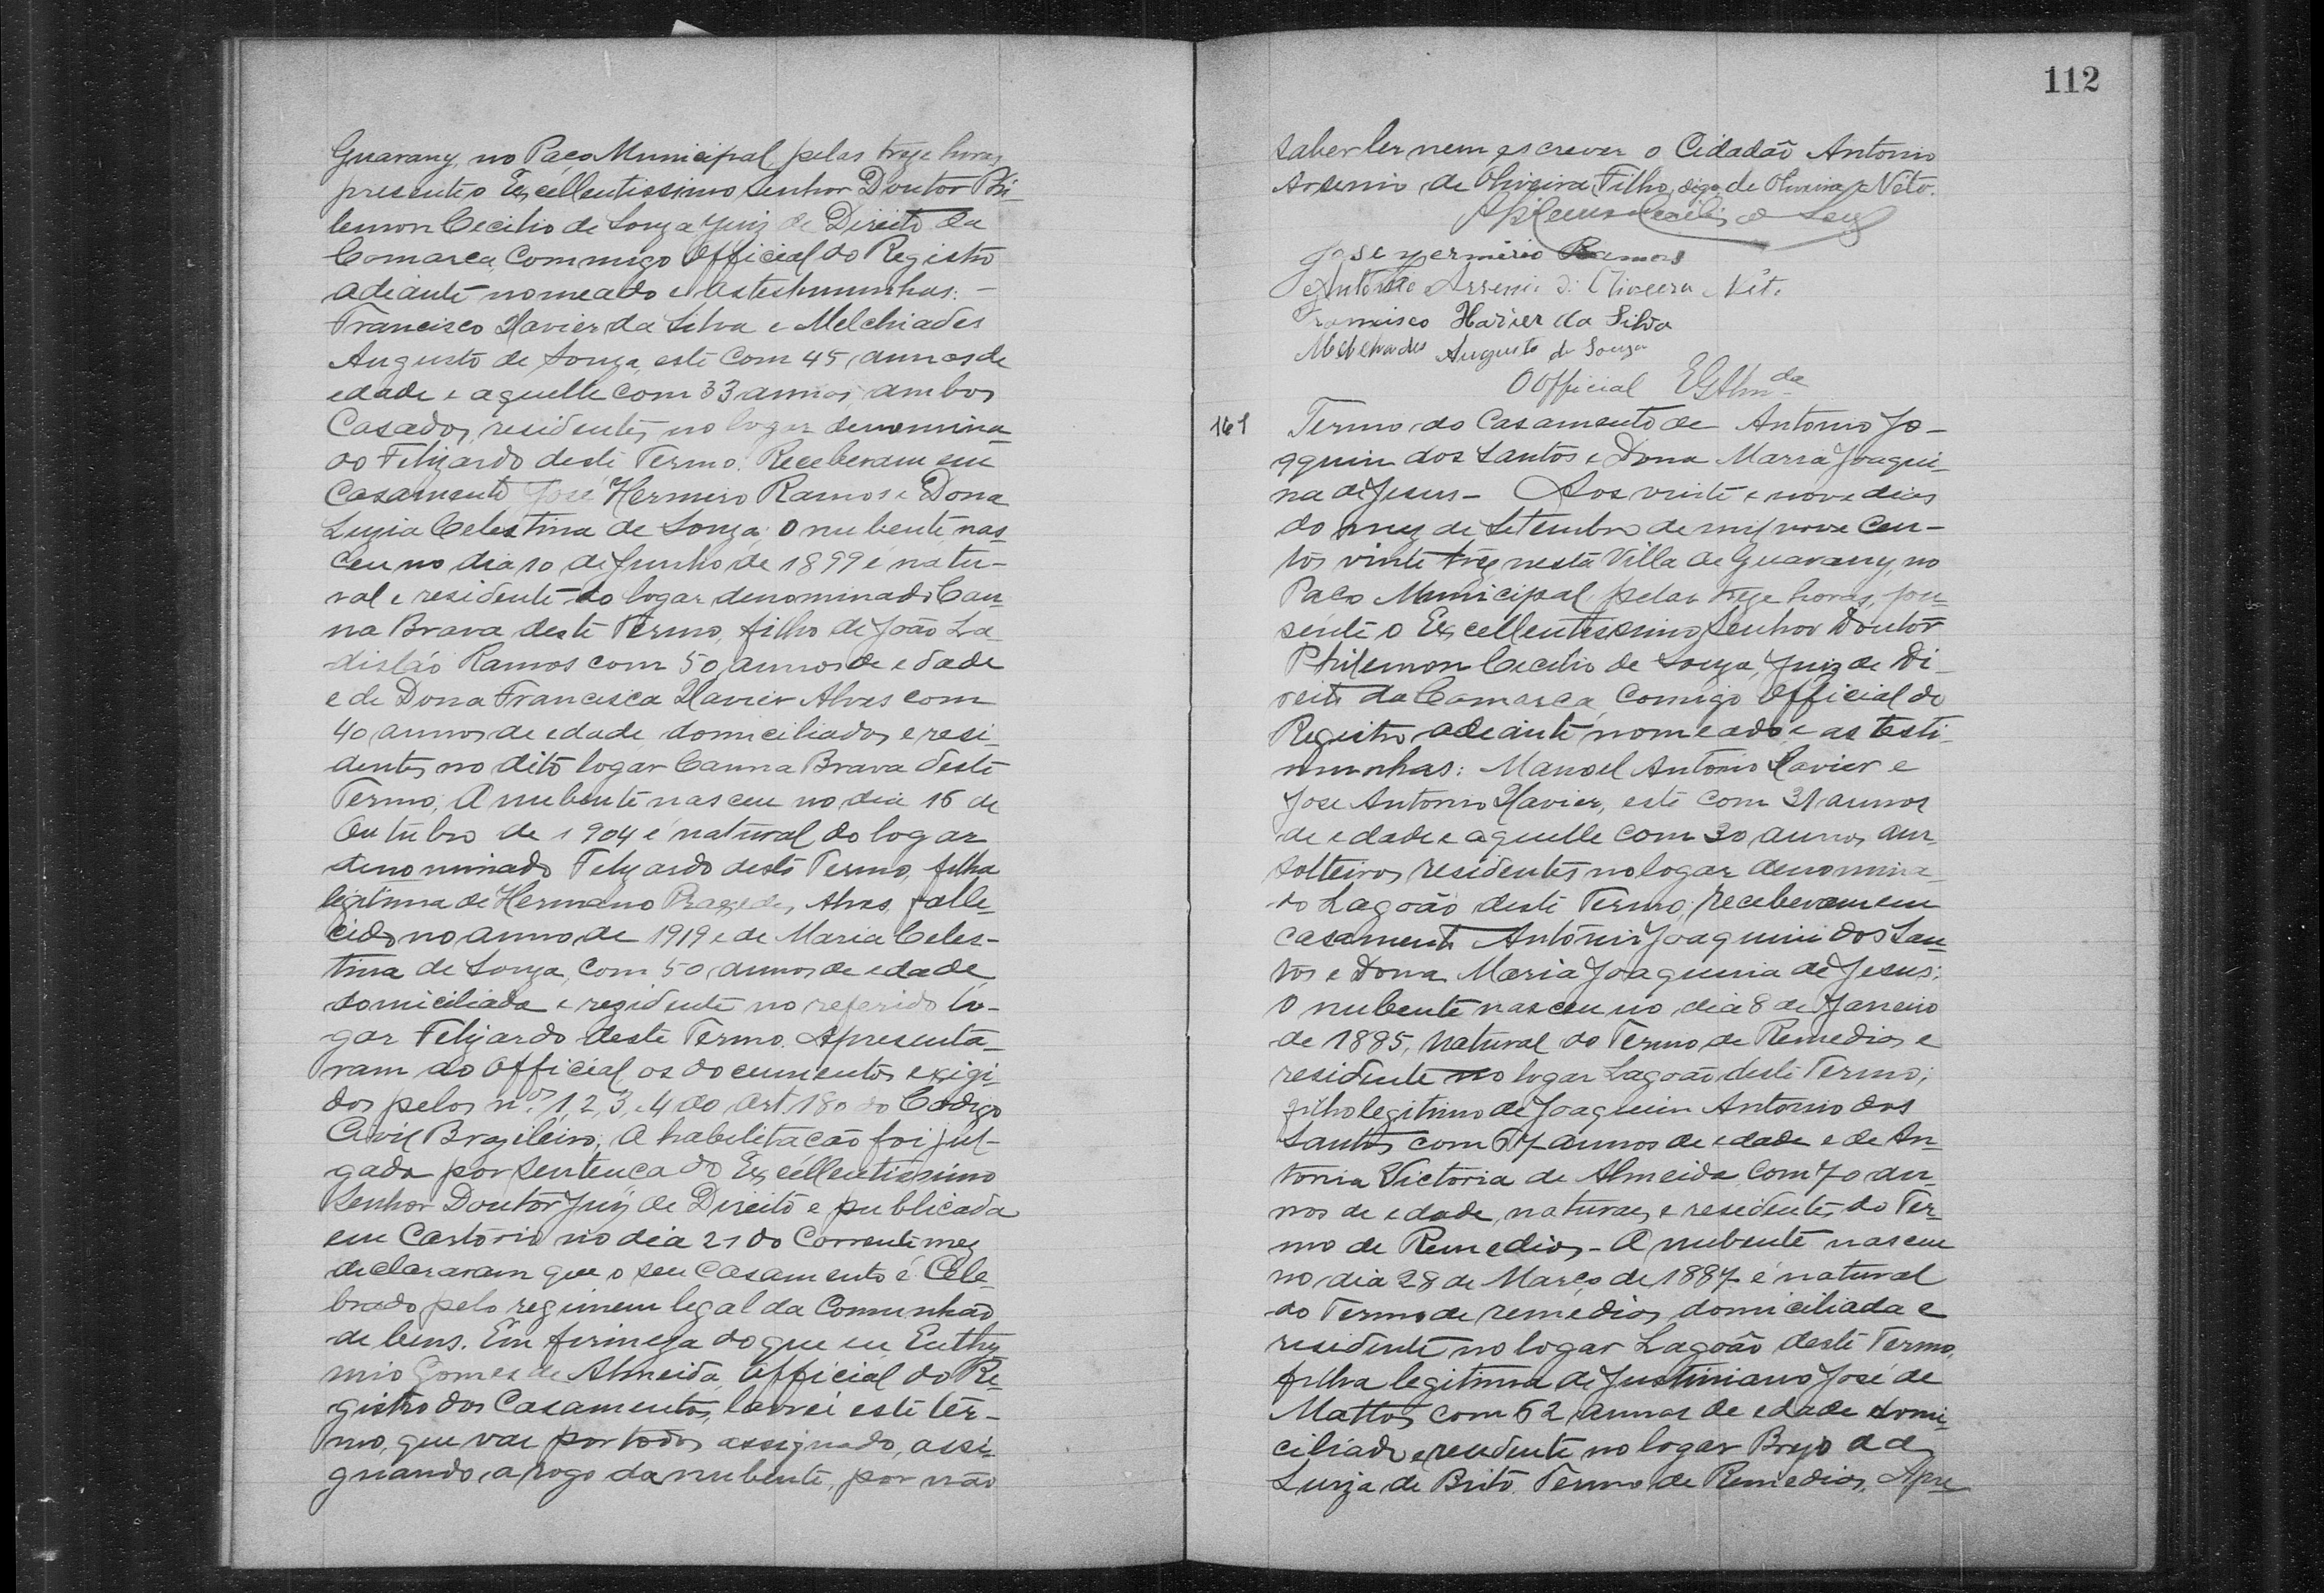 Guarany, no Paço Municipal, pelas treze horas,
presente o Excellentissimo Senhor Doutor Phi-
lemon Cecilio de Souza Juiz de Direito da
Comarca, Commigo Official do Registro
adeante nomeado e as testemunhas: -
Francisco Xavier da Silva e Melchiades
Augusto de Souza, este com 45 annos de
edade e aquelle com 33 annos, ambos
Casados, residentes no logar denomina-
do Felizardo deste Termo. Receberam em
Casamento José Hermirio Ramos e Dona
Luzia Celestina de Souza; O nubente nas-
ceu no dia 10 de Junho de 1899 é natu-
ral e residente do logar denominado Can-
na Brava deste Termo, filho de João La-
disláo Ramos com 50 annos de edade
e de Dona Francisca Xavier Alves com
40 annos de edade, domiciliados e resi-
dentes no dito logar Canna Brava deste
Termo; A nubente nasceu no dia 16 de
Outubro de 1904 é natural do logar
denominado Felizardo deste Termo, filha
legitima de Hermano Alves, falle-
cido no anno de 1919 e de Maria Celes-
tina de Souza, com 50 annos de edade,
domiciliada e rezidente no referido lo-
gar Felizardo deste Termo. Apresenta-
ram ao Official, os documentos exigi-
dos pelos nos. 1, 2, 3, e 4 do Art. 180 do Codigo
Civil Brazileiro; A habilitação foi jul-
gada por sentença do Excellentissimo
Senhor Doutor Juiz de Direito e publicada
em Cartorio no dia 21 do Corrente mez
declararam que o seu Casamento é Cele-
brado pelo regimem legal da Comunhão
de bens. Em firmeza do que eu Euthy-
mio Gomes de Almeida, Official do Re-
gistro dos Casamentos, lavrei este ter-
mo, que vae por todos assignado, assi-
gnando, a rogo da nubente, por não
112
saber ler nem escrever o Cidadão Antonio
Arsenio de Oliveira Filho, digo de Oliveira Neto.
José Hermirio Ramos
Antonio Arsenio de Oliveira Neto
Francisco Xavier da Silva
Melchiades Augusto de Souza
O Official EGAlmda
161 Termo do Casamento de Antonio Jo-
aquim dos Santos e Dona Maria Joaqui-
na de Jesus - Aos vinte e nove dias
do mez de Setembro de mil nove Cen-
tos vinte trez nesta Villa de Guarany, no
Paço Municipal, pelas treze horas, pre-
sente o Excellentissimo Senhor Doutor
Philemon Cecilio de Souza, Juiz de Di-
reito da Comarca, Comigo Official do
Registro adeante nomeado e as testi-
munhas: Manoel Antonio Xavier e
José Antonio Xavier, este com 31 annos
de edade e aquelle com 30 annos, am.
solteiros residentes no logar denomina-
do Lagoão deste Termo; receberam em
casamento Antonio Joaquim dos San-
tos e Dona Maria Joaquina de Jesus;
O nubente nasceu no dia 8 de Janeiro
de 1885, natural do Termo de Remedios e
residente no logar Lagoão deste Termo;
filho legitimo de Joaquim Antonio dos
Santos com 67 annos de edade e de An-
tonia Victoria de Almeida com 70 an-
nos de edade, naturaes e residentes do Ter-
mo de Remedios - A nubente nasceu
no dia 28 de Março de 1887 é natural
do Termo de remedios, domiciliada e
residente no logar Lagoão deste Termo,
filha legitima de Justiniano José de
Mattos com 62 annos de edade domi-
ciliado e residente no logar Brejo
Luiza de Brito Termo de Remedios, Apre